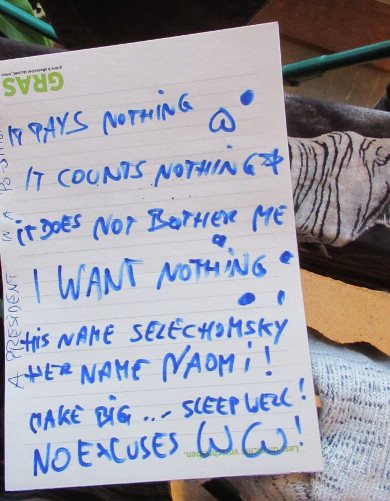 GRAS
IT PAYS NOTHING
IT COUNTS NOTHING
IT DOES NOT BOTHER ME
I WANT NOTHING
HIS NAME SELECHOMSKY
HER NAME NAOMI!
MAKE BIG ... SLEEP WELL!
NO EXCUSES
A PRESIDENT IN A